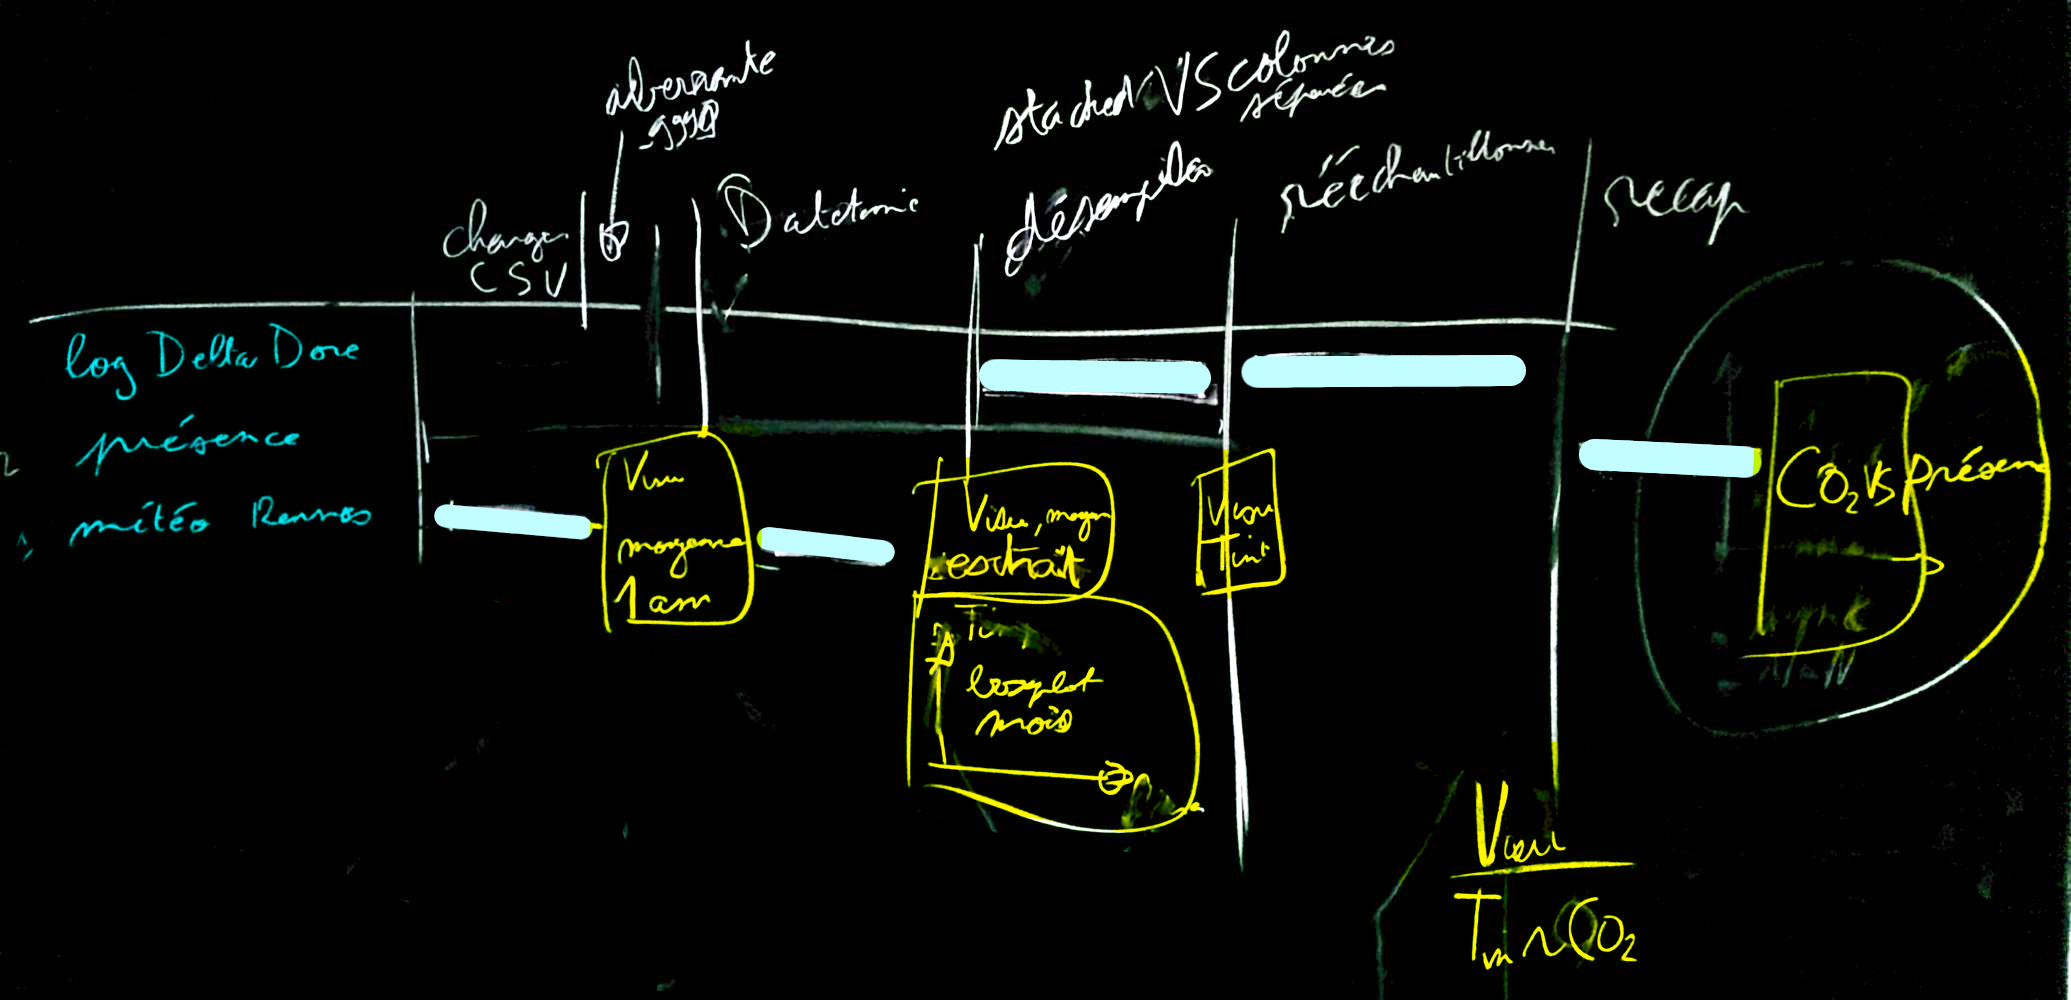 aberrante
-9999
stacked VS colonnes
séparées
charger
CSV
Datetime
désempiler
rééchantillonner
recap
log Delta Dore
présence
météo Rennes
Visu
moyenne
1 am
Visu, moyen
extrait
Visu
Tint
CO₂ VS présen
boxplot
mois
NaN
Visu
CO₂